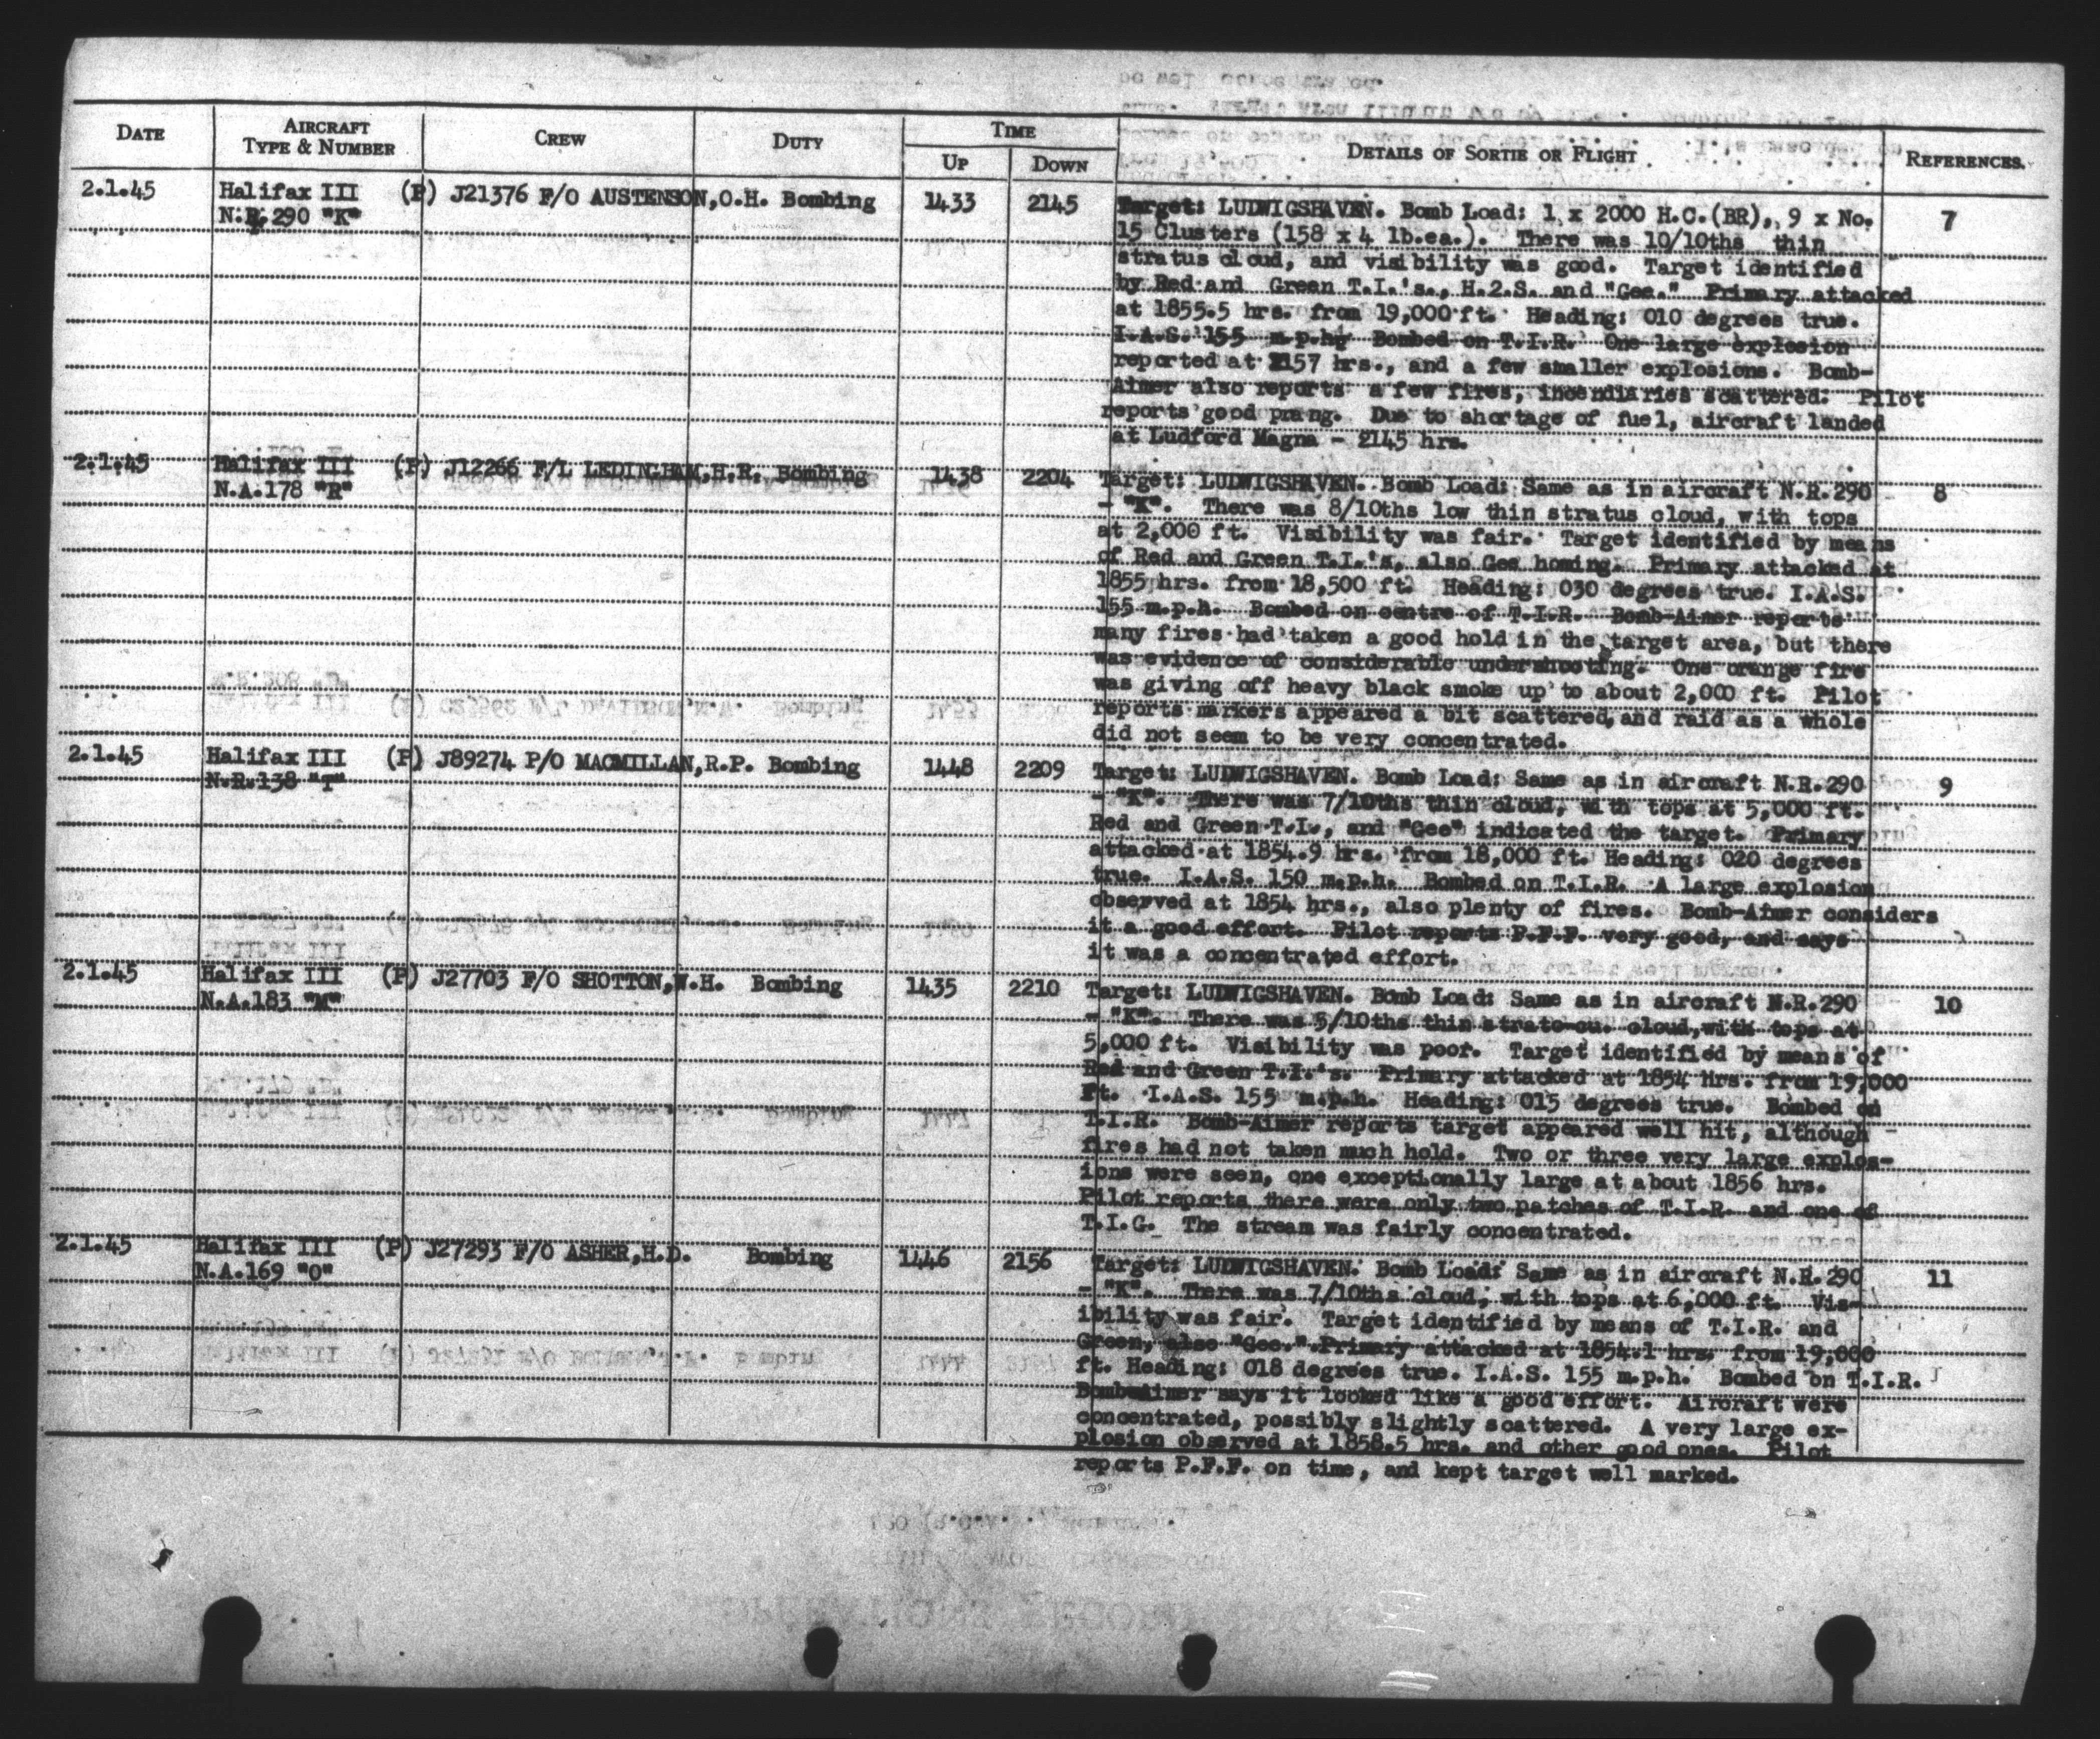 DATE
AIRCRAFT
TYPE & NUMBER
CREW
DUTY
TIME
UP
DOWN
DETAILS OF SORTIE OR FLIGHT
REFERENCES.
2.1.45 Halifax III (P) J21376 F/O AUSTENSON,O.H. Bombing 1433 2145
N.R.290 "K"
Target: LUDWIGSHAVEN. Bomb Load: 1 x 2000 H.C.(BR), 9 x No. 7
15 Clusters (158 x 4 lb.ea.). There was 10/10ths thin
stratus cloud, and visibility was good. Target identified
by Red and Green T.I.'s., H.2.S. and "Gee." Primary attacked
at 1855.5 hrs. from 19,000 ft. Heading: 010 degrees true.
I.A.S. 155 m.p.h. Bombed on T.I.R. One large explosion
reported at 2157 hrs., and a few smaller explosions. Bomb-
Aimer also reports a few fires, incendiaries scattered. Pilot
reports good prang. Due to shortage of fuel, aircraft landed
at Ludford Magna - 2145 hrs.
2.1.45 Halifax III (P) J12266 F/L LEDINGHAM,H.R. Bombing 1438 2204
N.A.178 "R"
Target: LUDWIGSHAVEN. Bomb Load: Same as in aircraft N.R.290 8
- "K". There was 8/10ths low thin stratus cloud, with tops
at 2,000 ft. Visibility was fair. Target identified by means
of Red and Green T.I.'s, also Gee homing. Primary attacked at
1855 hrs. from 18,500 ft. Heading: 030 degrees true. I.A.S.
155 m.p.h. Bombed on centre of T.I.R. Bomb-Aimer reports
many fires had taken a good hold in the target area, but there
was evidence of considerable undershooting. One orange fire
was giving off heavy black smoke up to about 2,000 ft. Pilot
reports markers appeared a bit scattered, and raid as a whole
did not seem to be very concentrated.
2.1.45 Halifax III (P) J89274 P/O MACMILLAN,R.P. Bombing 1448 2209
N.R.138 "T"
Target: LUDWIGSHAVEN. Bomb Load: Same as in aircraft N.R.290 9
- "K". There was 7/10ths thin cloud, with tops at 5,000 ft.
Red and Green T.I., and "Gee" indicated the target. Primary
attacked at 1854.9 hrs. from 18,000 ft. Heading: 020 degrees
true. I.A.S. 150 m.p.h. Bombed on T.I.R. A large explosion
observed at 1854 hrs., also plenty of fires. Bomb-Aimer considers
it a good effort. Pilot reports P.F.F. very good, and says
it was a concentrated effort.
2.1.45 Halifax III (P) J27703 F/O SHOTTON,W.H. Bombing 1435 2210
N.A.183 "M"
Target: LUDWIGSHAVEN. Bomb Load: Same as in aircraft N.R.290 10
- "K". There was 5/10ths thin strato-cu. cloud, with tops at
5,000 ft. Visibility was poor. Target identified by means of
Red and Green T.I.'s. Primary attacked at 1854 hrs. from 19,000
ft. I.A.S. 155 m.p.h. Heading: 015 degrees true. Bombed on
T.I.R. Bomb-Aimer reports target appeared well hit, although
fires had not taken much hold. Two or three very large explos-
ions were seen, one exceptionally large at about 1856 hrs.
Pilot reports there were only two patches of T.I.R. and one of
T.I.G. The stream was fairly concentrated.
2.1.45 Halifax III (P) J27293 F/O ASHER,H.D. Bombing 1446 2156
N.A.169 "O"
Target: LUDWIGSHAVEN. Bomb Load: Same as in aircraft N.R.290 11
- "K". There was 7/10ths cloud, with tops at 6,000 ft. Vis-
ibility was fair. Target identified by means of T.I.R. and
Green, also "Gee." Primary attacked at 1854.1 hrs. from 19,000
ft. Heading: 018 degrees true. I.A.S. 155 m.p.h. Bombed on T.I.R.
Bomb-Aimer says it looked like a good effort. Aircraft were
concentrated, possibly slightly scattered. A very large ex-
plosion observed at 1858.5 hrs. and other good ones. Pilot
reports P.F.F. on time, and kept target well marked.